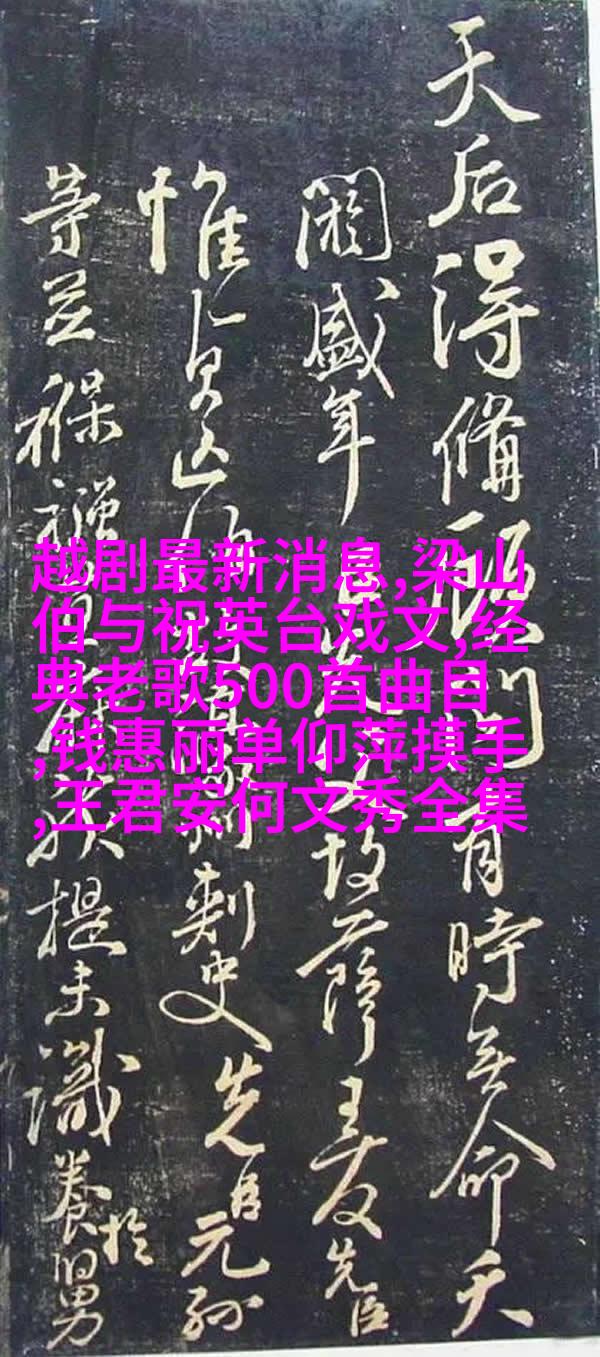 越剧最新消息,梁山
伯与祝英台戏文,经
典老歌500首曲目
,钱惠丽单仰萍摸手
,王君安何文秀全集
天后得備則有時無命天
閼盛年故薛王友先臣
惟貞亡刺史先臣元孫
等並褓提未識養於舅